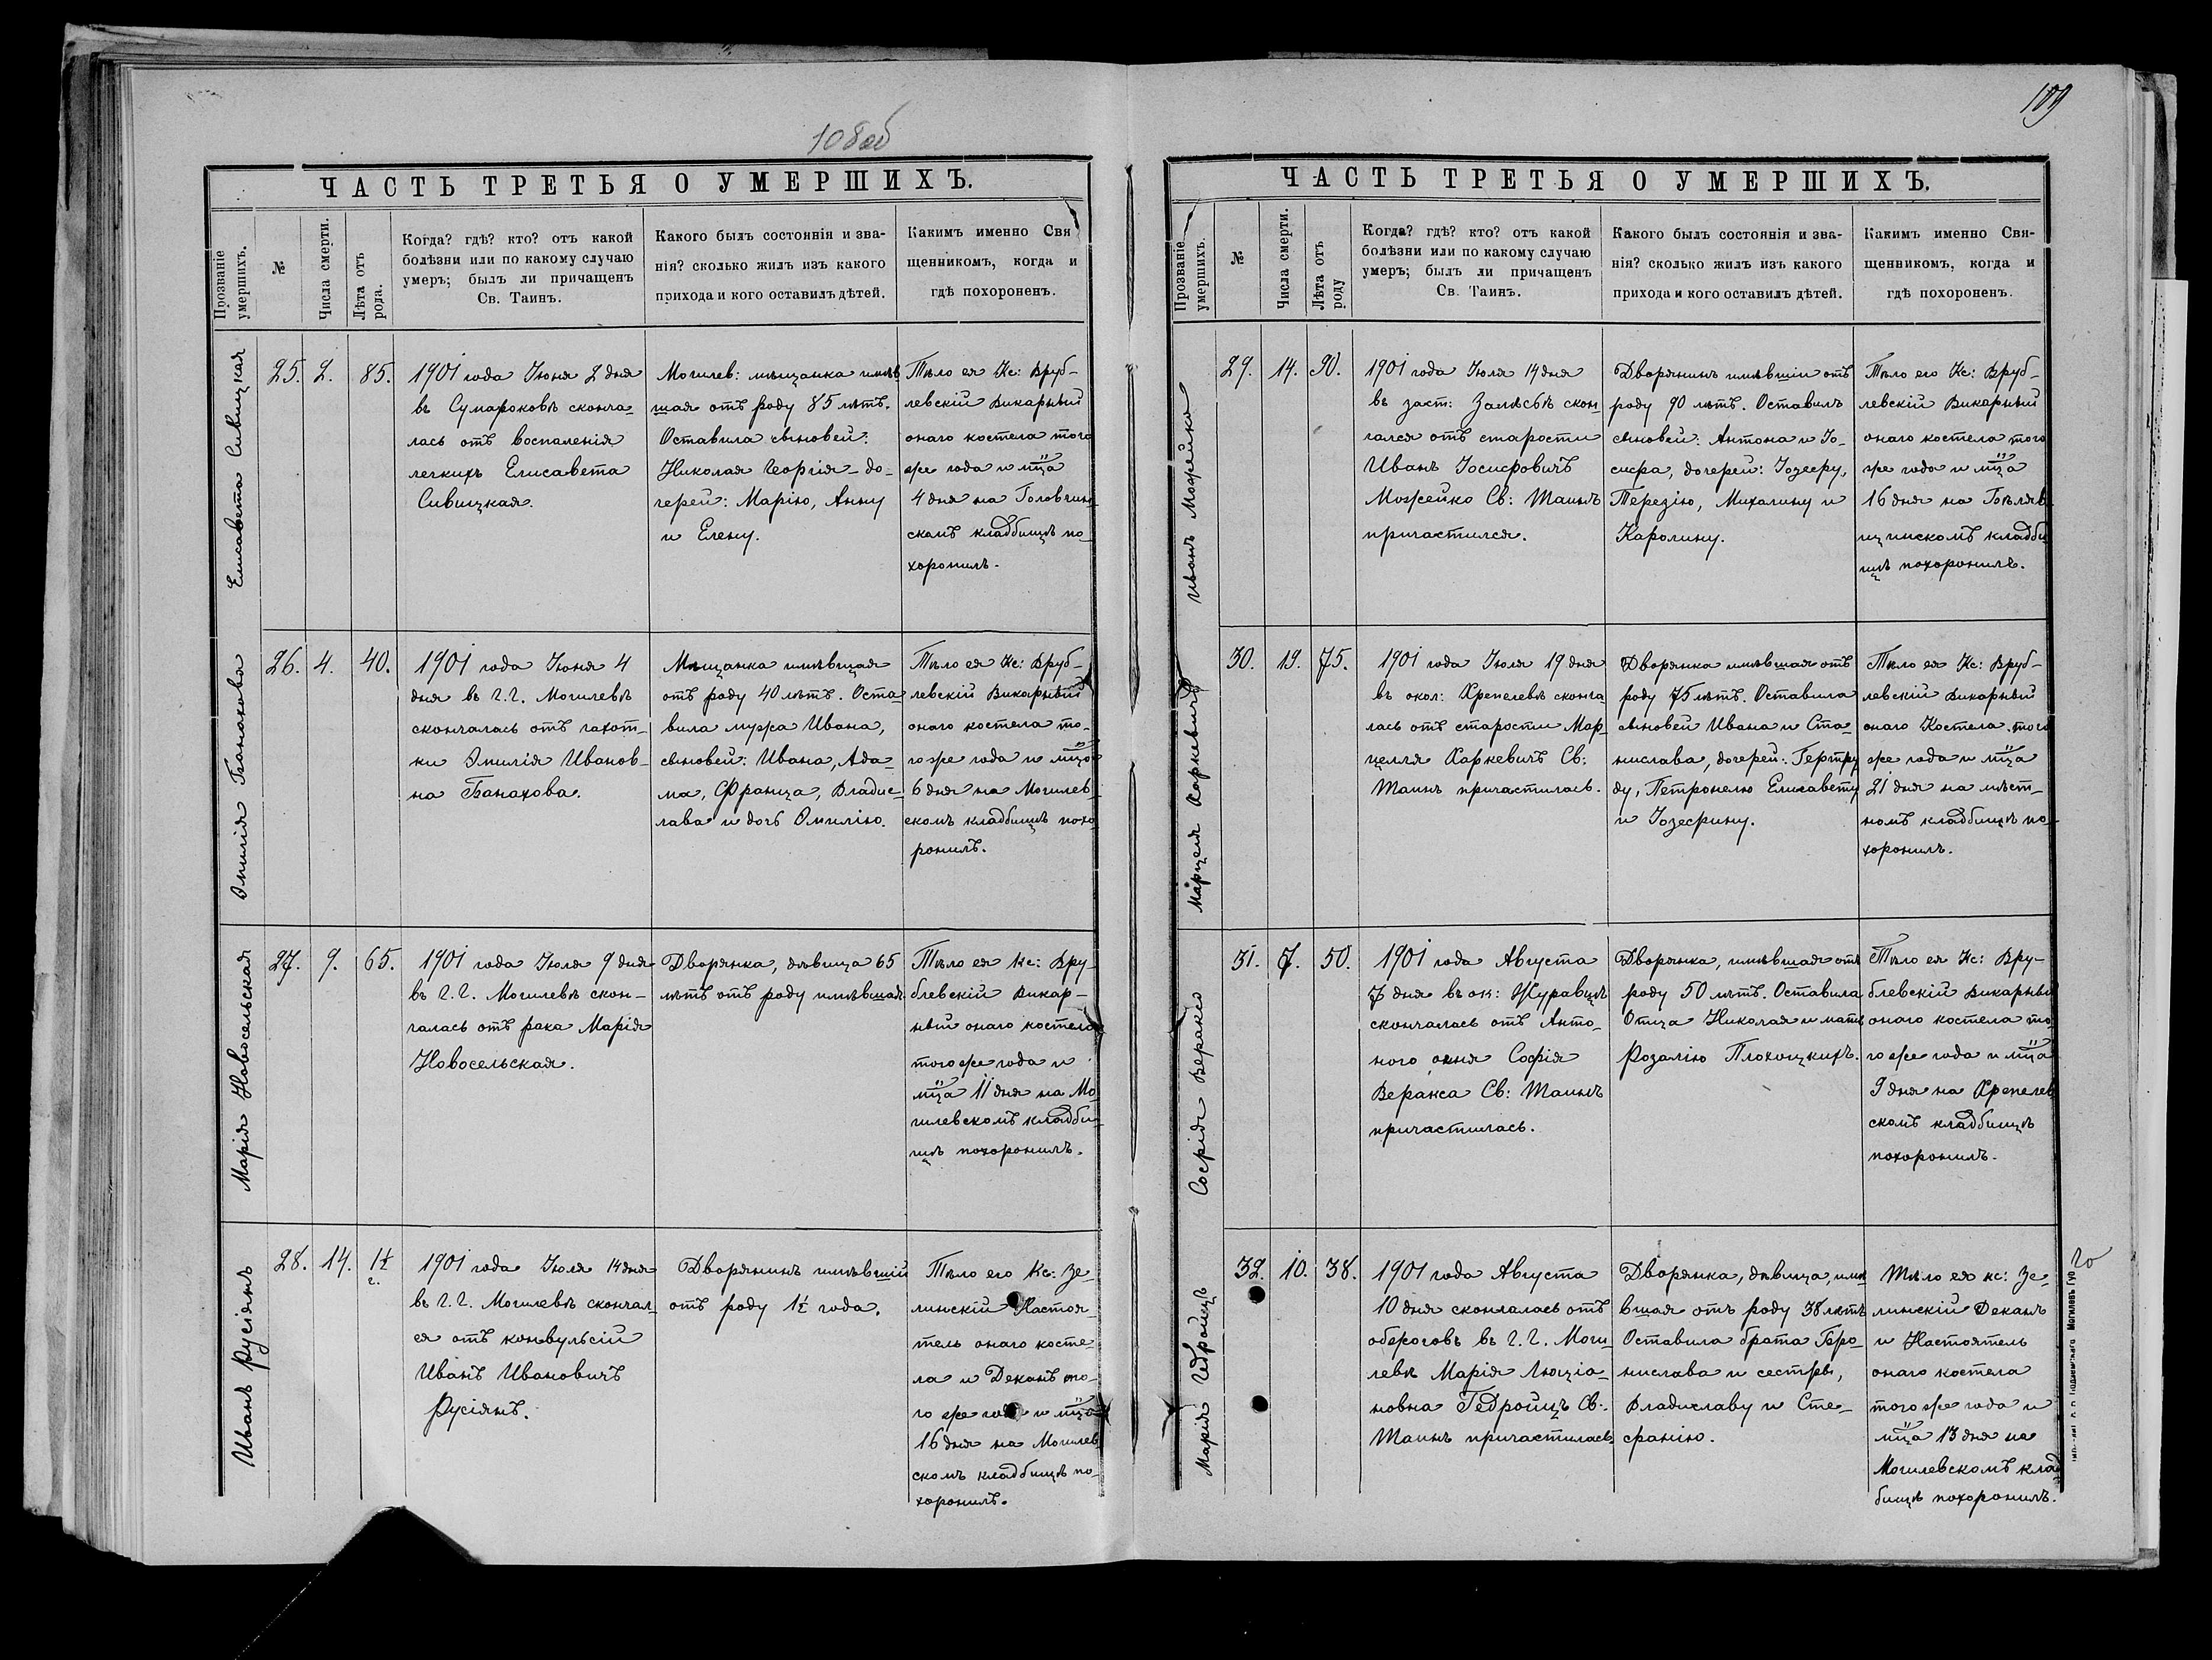 108 об
ЧАСТЬ ТРЕТЬЯ О УМЕРШИХЪ.
Прозваніе умершихъ.
№
Числа смерти.
Лѣта отъ рода.
Когда? гдѣ? кто? отъ какой
болѣзни или по какому случаю
умеръ; былъ ли причащенъ
Св. Таинъ.
Какого былъ состоянія и зва-
нія? сколько жилъ изъ какого
прихода и кого оставилъ дѣтей.
Какимъ именно Свя
щенникомъ, когда и
гдѣ похороненъ.
Елисавета Сивицкая
25. 2. 85.
1901 года Іюня 2 дня
въ Сумароковѣ сконча-
лась отъ воспаленія
легкихъ Елисавета
Сивицкая.
Могилев: мѣщанка имѣв
шая отъ роду 85 лѣтъ.
Оставила сыновей:
Николая Георгія - до-
черей: Марію, Анну
и Елену.
Тѣло ея Кс: Вруб-
левскій Викарный
онаго костела того
же года и мца
4 дня на Головчин-
скомъ кладбищѣ по-
хоронилъ.
Эмилія Банахова
26. 4. 40.
1901 года Іюня 4
дня въ г. г. Могилевѣ
скончалась отъ чахот-
ки Эмилія Иванов-
на Банахова.
Мѣщанка имѣвшая
отъ роду 40 лѣтъ. Оста-
вила мужа Ивана,
сыновей: Ивана, Ада-
ма, Франца, Владис-
лава и дочь Эмилію.
Тѣло ея Кс: Вруб-
левскій Викарный
онаго костела то-
го же года и мца
6 дня на Могилев-
скомъ кладбищѣ похо-
ронилъ.
Марія Новосельская
27. 9. 65.
1901 года Іюля 9 дня
въ г. г. Могилевѣ скон-
чалась отъ рака Марія
Новосельская.
Дворянка, дѣвица 65
лѣтъ отъ роду имѣвшая.
Тѣло ея Кс: Вру-
блевскій Викар-
ный онаго костела
того же года и
мца 11 дня на Мо-
гилевскомъ кладби-
щѣ похоронилъ.
Иванъ Русіянъ
28. 14. 1½ г.
1901 года Іюля 14 дня
въ г. г. Могилевѣ скончал-
ся отъ конвульсій
Иванъ Ивановичъ
Русіянъ.
Дворянинъ имѣвшій
отъ роду 1½ года.
Тѣло его Кс: Зе-
линскій Настоя-
тель онаго косте-
ла и Деканъ то-
го же года и мца
16 дня на Могилев-
скомъ кладбищѣ по-
хоронилъ.
109
ЧАСТЬ ТРЕТЬЯ О УМЕРШИХЪ.
Прозваніе умершихъ.
№
Числа смерти.
Лѣта отъ роду
Когда? гдѣ? кто? отъ какой
болѣзни или по какому случаю
умеръ; былъ ли причащенъ
Св. Таинъ.
Какого былъ состоянія и зва-
нія? сколько жилъ изъ какого
прихода и кого оставилъ дѣтей.
Какимъ именно Свя-
щенникомъ, когда и
гдѣ похороненъ.
Иванъ Можейко
29. 14. 90.
1901 года Іюля 14 дня
въ заст: скон-
чался отъ старости
Иванъ Іосифовичъ
Можейко Св: Таинъ
причастился.
Дворянинъ имѣвшій отъ
роду 90 лѣтъ. Оставилъ
сыновей: Антона и Іо-
сифа, дочерей: Іозефу,
Терезію, Михалину и
Каролину.
Тѣло его Кс: Вруб-
левскій Викарный
онаго костела того
же года и мца
16 дня на
кладби-
щѣ похоронилъ.
Марцеля Харкевичъ
30. 19. 75.
1901 года Іюля 19 дня
въ окол: Хрепелевѣ сконча
лась отъ старости Мар-
целля Харкевичъ Св:
Таинъ причастилась.
Дворянка имѣвшая отъ
роду 75 лѣтъ. Оставила
сыновей Ивана и Ста-
нислава, дочерей: Гертру
ду, Петронелю Елисавету
и Іозефину.
Тѣло ея Кс: Вруб-
левскій Викарный
онаго Костела того
же года и мца
21 дня на мѣст-
номъ кладбищѣ по-
хоронилъ.
Софія
31. 7. 50.
1901 года Августа
7 дня въ ок: Журавцѣ
скончалась отъ Анто-
ного огня Софія
Св: Таинъ
причастилась.
Дворянка, имѣвшая отъ
роду 50 лѣтъ. Оставила
Отца Николая и мать
Розалію Плохоцкихъ.
Тѣло ея Кс: Вру-
блевскій Викарный
онаго костела то-
го же года и мца
9 дня на Хрепелев
скомъ кладбищѣ
похоронилъ.
Марія Гедройцъ
32. 10. 38.
1901 года Августа
10 дня скончалась отъ
въ г. г. Моги
левѣ Марія Люціа-
новна Гедройцъ Св:
Таинъ причастилась.
Дворянка, дѣвица, имѣ
вшая отъ роду 38 лѣтъ
Оставила брата Бро-
нислава и сестры,
Владиславу и Сте-
фанію.
Тѣло ея кс: Зе-
линскій Деканъ
и Настоятель
онаго костела
того же года и
мца 13 дня на
Могилевскомъ клад
бищѣ похоронилъ.
Могилевъ Губ